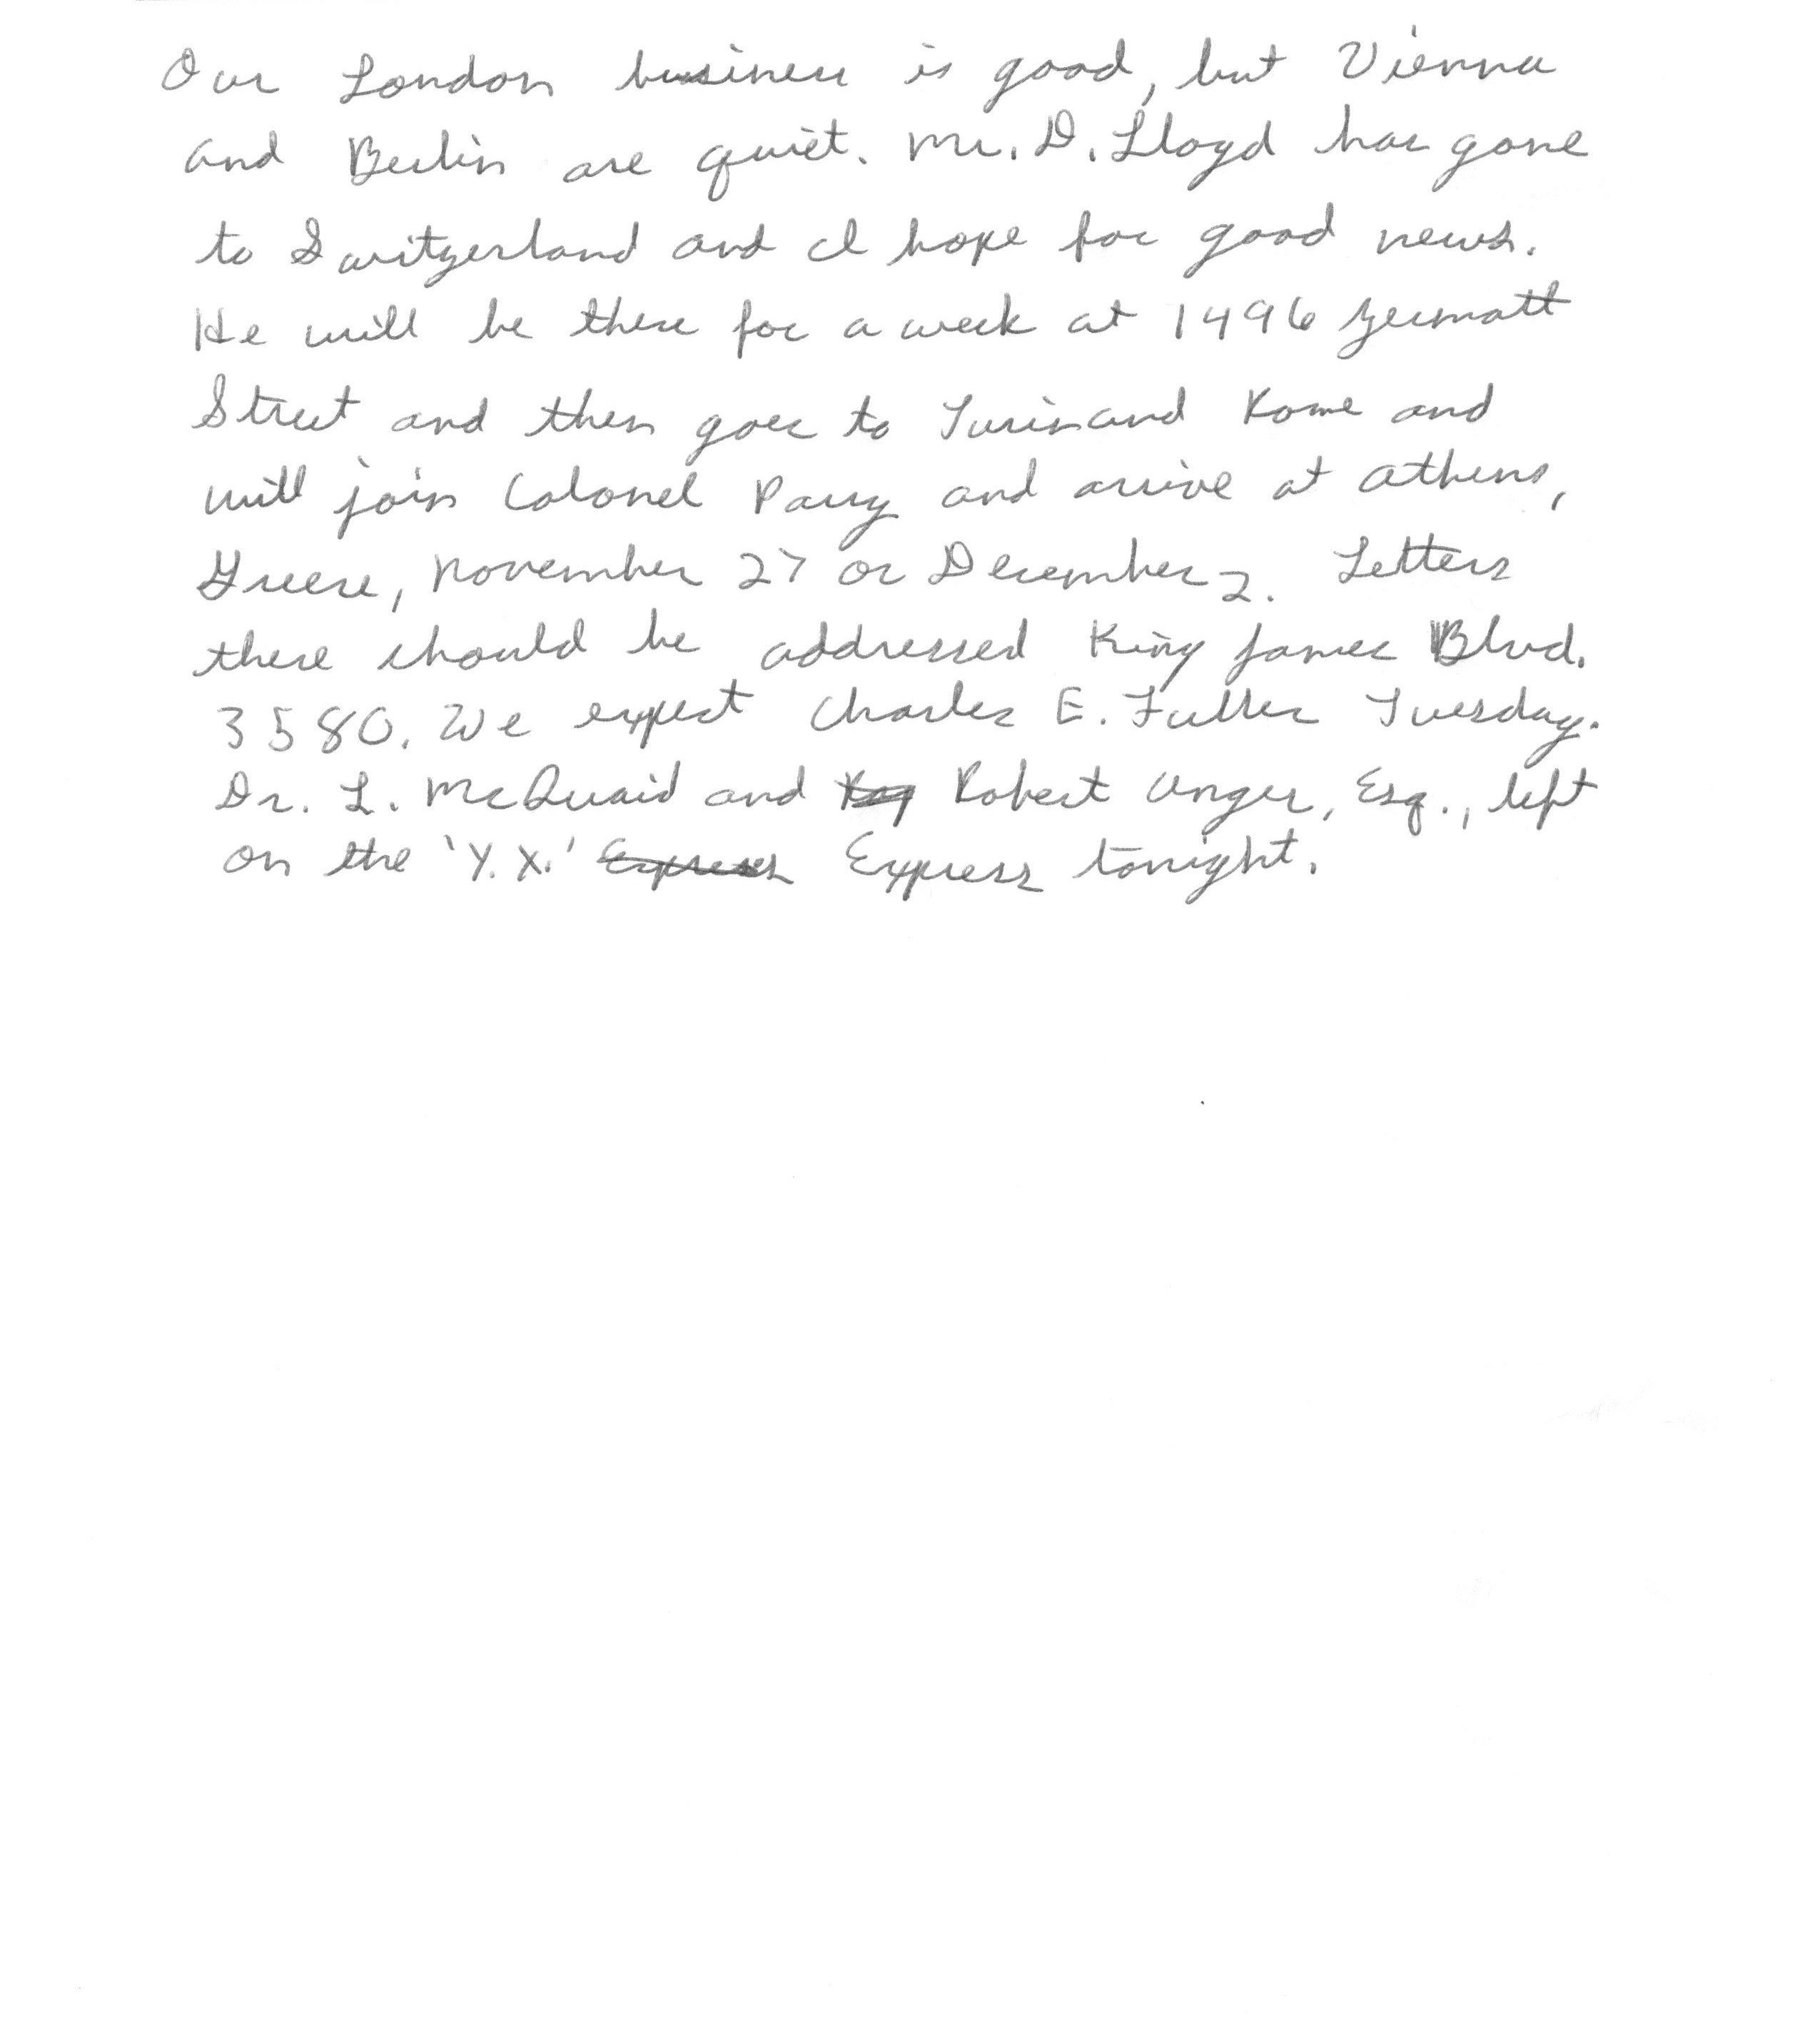 Our London business is good, but Vienna
and Berlin are quiet. Mr. D. Lloyd has gone
to Switzerland and I hope for good news.
He will be there for a week at 1496 Zermatt
Street and then goes to Turin and Rome and
will join Colonel Parry and arrive at Athens,
Greece, November 27 or December 2. Letters
there should be addressed King James Blvd.
3580. We expect Charles E. Fuller Tuesday.
Dr. L. McQuaid and Robert Unger, Esq., left
on the 'Y.X.' Express Express tonight.